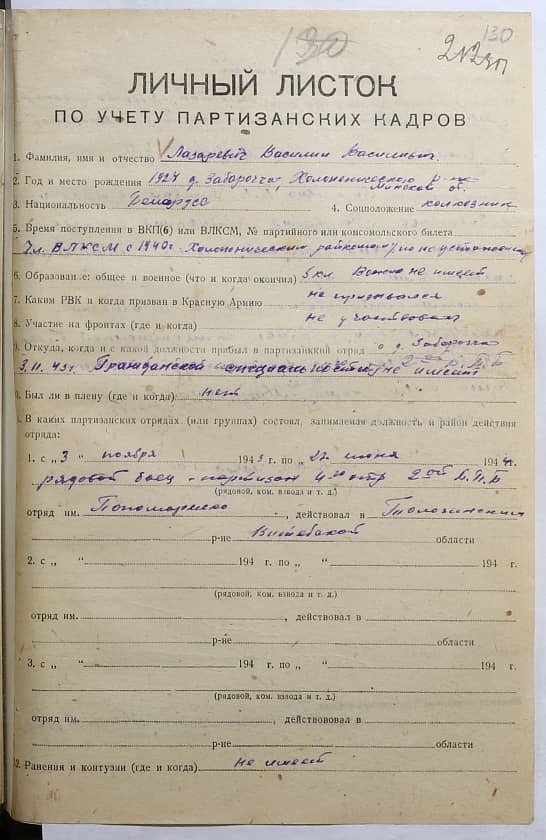 130
130
ЛИЧНЫЙ ЛИСТОК
ПО УЧЕТУ ПАРТИЗАНСКИХ КАДРОВ
1. Фамилия, имя и отчество Лазаревич Василий Васильевич
2. Год и место рождения 1924 д. Заборочча, Холопеничского р-на
Минской об.
3. Национальность Беларусс 4. Соцположение колхозник
5. Время поступления в ВКП(б) или ВЛКСМ, № партийного или комсомольского билета
Чл. ВЛКСМ с 1940г Холопеническим райкомом
6. Образование: общее и военное (что и когда окончил) 5 кл. Военно не имеет
7. Каким РВК и когда призван в Красную Армию не призывался
8. Участие на фронтах (где и когда) не участвовал
9. Откуда, когда и с какой должности прибыл в партизанский отряд с д. Заборочча
3.11.43г. Гражданской специальности не имеет
0. Был ли в плену (где и когда) нет
В каких партизанских отрядах (или группах) состоял, занимаемая должность и район действия
отряда:
1. с „ 3 “ ноября 1943 г. по „ 27 “ июня 1944 г.
рядовой боец - партизан 4го отр 2ой Б.П.Б
(рядовой, ком. взвода и т. д.)
отряд им. Пономаренко, действовал в Толочинским
р-не Витебской области
2. с „ “ 194 г. по „ “ 194 г.
(рядовой, ком. взвода и т. д.)
отряд им. , действовал в
р-не области
3. с „ “ 194 г. по „ “ 194 г.
(рядовой, ком. взвода и т. д.)
отряд им. , действовал в
р-не области
2. Ранения и контузии (где и когда) не имеет